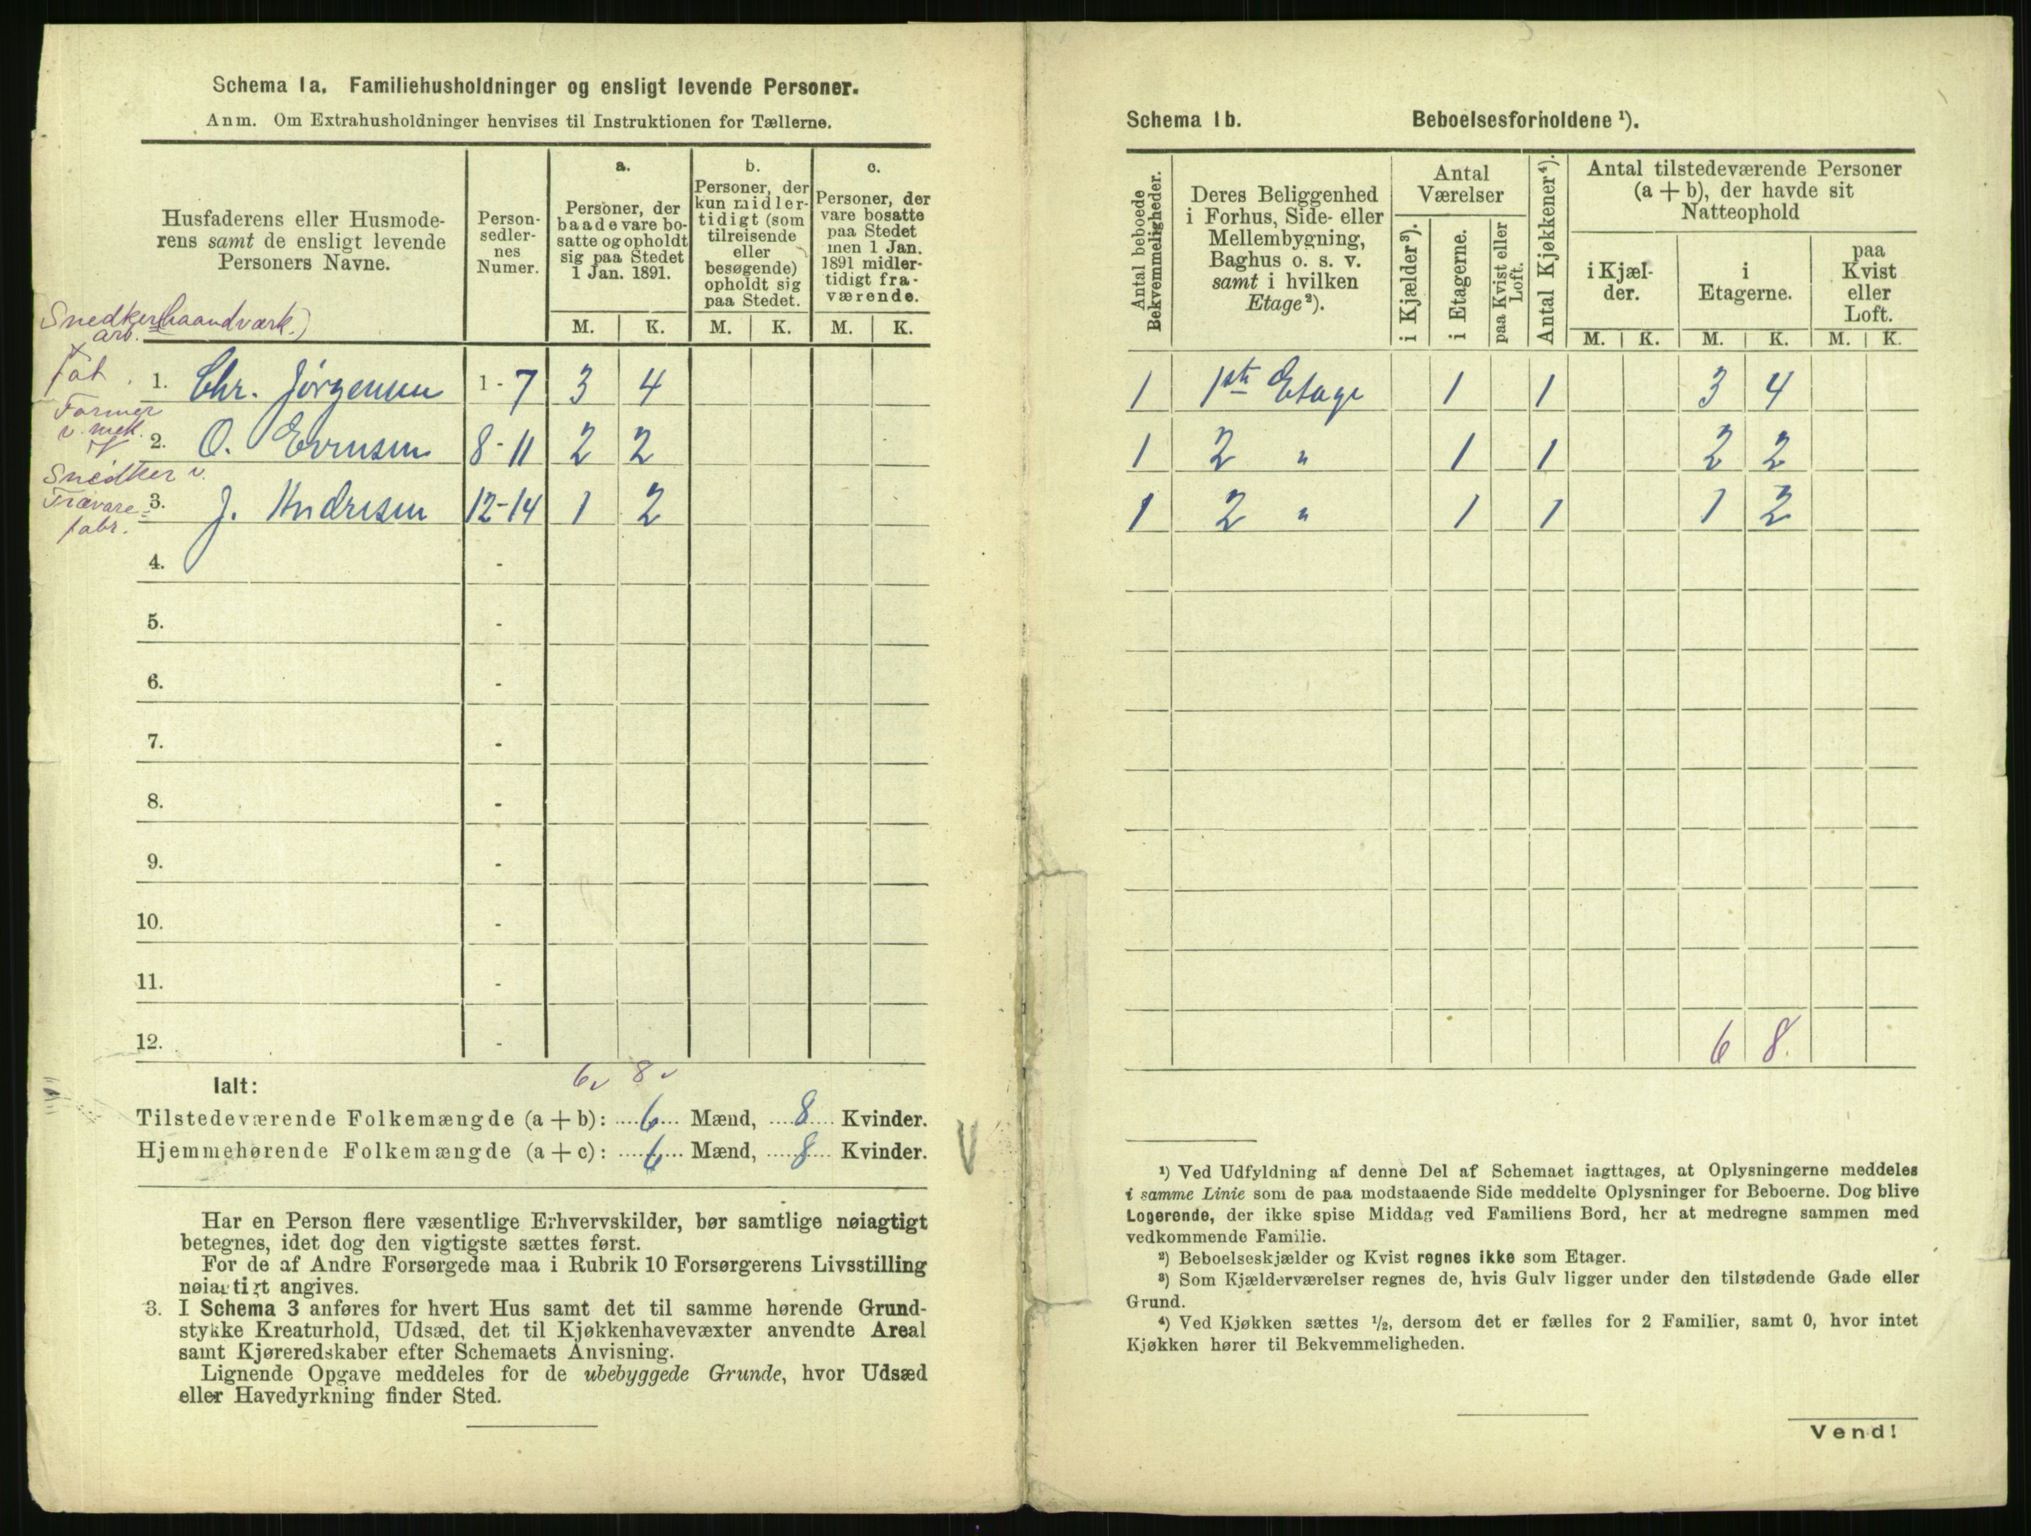 Schema 1a. Familiehusholdninger og ensligt levende Personer.
Anm. Om Extrahusholdninger henvises til Instruktionen for Tællerne.
Husfaderens eller Husmode-
rens samt de ensligt levende
Personers Navne.
Person-
sedler-
nes
Numer.
a.
Personer, der
baade vare bo-
satte og opholdt
sig paa Stedet
1 Jan. 1891.
b.
Personer, der
kun midler-
tidigt (som
tilreisende
eller
besøgende)
opholdt sig
paa Stedet.
c.
Personer, der
vare bosatte
paa Stedet
men 1 Jan.
1891 midler-
tidigt fra-
værende.
M. K. M. K. M. K.
Snedker (haandværk.)
arb.
1. Chr. Jørgensen 1-7 3 4
Former
v. mek.
2. O. Evensen 8-11 2 2
Snedker v.
Trævare-
fabr.
3. J. Andresen 12-14 1 2
4. -
5. -
6. -
7. -
8. -
9. -
10. -
11. -
12. -
6 v 8 v
Ialt:
Tilstedeværende Folkemængde (a + b): 6 Mænd, 8 Kvinder.
Hjemmehørende Folkemængde (a + c): 6 Mænd, 8 Kvinder.
Har en Person flere væsentlige Erhvervskilder, bør samtlige nøiagtigt
betegnes, idet dog den vigtigste sættes først.
For de af Andre Forsørgede maa i Rubrik 10 Forsørgerens Livsstilling
nøiagtigt angives.
3. I Schema 3 anføres for hvert Hus samt det til samme hørende Grund-
stykke Kreaturhold, Udsæd, det til Kjøkkenhavevæxter anvendte Areal
samt Kjøreredskaber efter Schemaets Anvisning.
Lignende Opgave meddeles for de ubebyggede Grunde, hvor Udsæd
eller Havedyrkning finder Sted.
Schema 1b. Beboelsesforholdene ¹).
Antal beboede
Bekvemmeligheder.
Deres Beliggenhed
i Forhus, Side- eller
Mellembygning,
Baghus o. s. v.
samt i hvilken
Etage ²).
Antal
Værelser
i Kjælder ³).
i Etagerne.
paa Kvist eller
Loft.
Antal Kjøkkener ⁴).
Antal tilstedeværende Personer
(a + b), der havde sit
Natteophold
i Kjæl-
der.
i
Etagerne.
paa
Kvist
eller
Loft.
M. K. M. K. M. K.
1 1ste Etage 1 1 3 4
1 2 " 1 1 2 2
1 2 " 1 1 1 2
6 8.
¹) Ved Udfyldning af denne Del af Schemaet iagttages, at Oplysningerne meddeles
i samme Linie som de paa modstaaende Side meddelte Oplysninger for Beboerne. Dog blive
Logerende, der ikke spise Middag ved Familiens Bord, her at medregne sammen med
vedkommende Familie.
²) Beboelseskjælder og Kvist regnes ikke som Etager.
³) Som Kjælderværelser regnes de, hvis Gulv ligger under den tilstødende Gade eller
Grund.
⁴) Ved Kjøkken sættes ½, dersom det er fælles for 2 Familier, samt 0, hvor intet
Kjøkken hører til Bekvemmeligheden.
Vend!